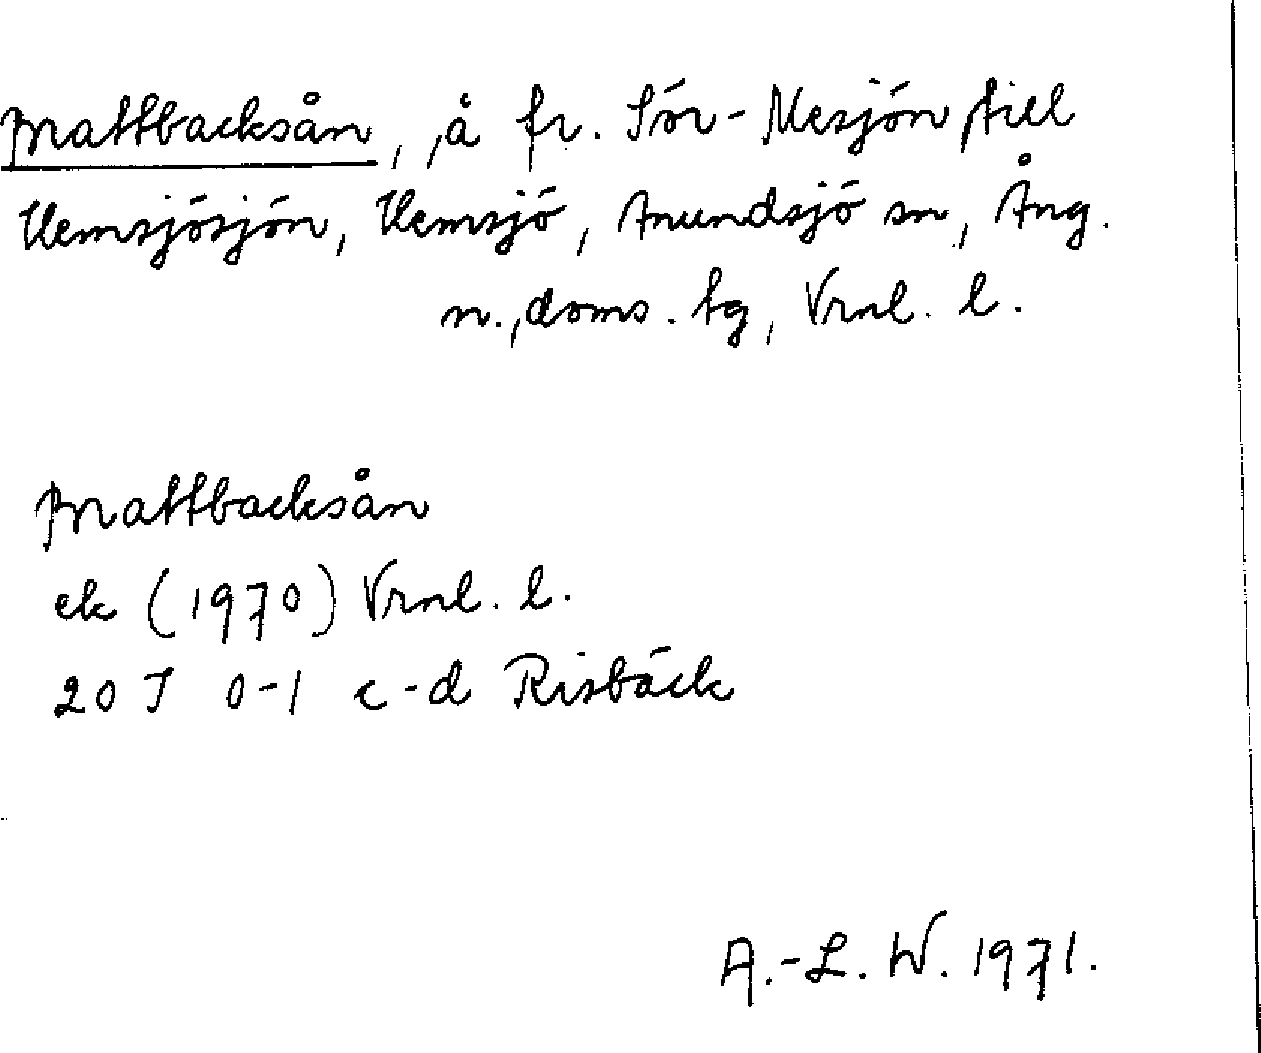 Mattbacksån, å fr. Sör-Mesjön till
Hemsjösjön, Hemsjö, Anundsjö sn, Ång.
n. doms. tg, Vrnl. l.
Mattbacksån
ek (1970) Vrnl. l.
20 J 0-1 c-d Risbäck
A.-L. W. 1971.